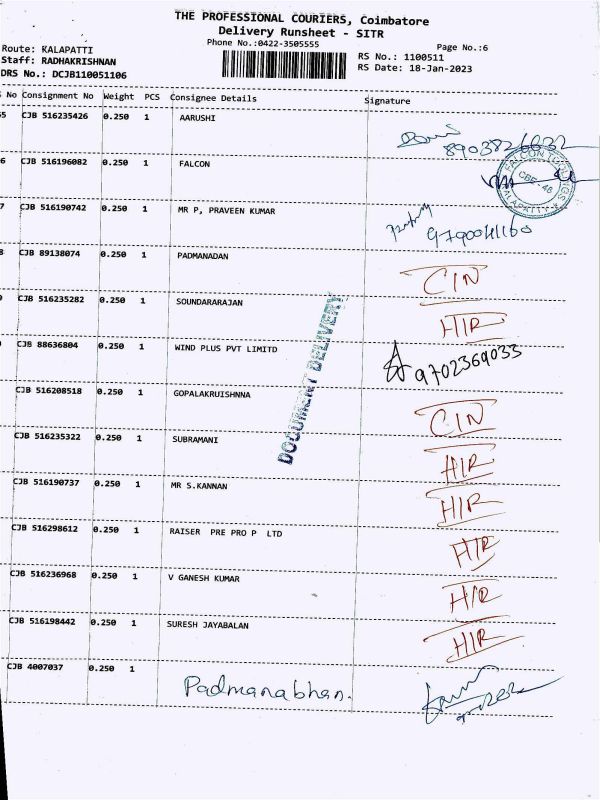 THE PROFESSIONAL COURIERS, Coimbatore
Delivery Runsheet - SITR
Phone No.:0422-3505555
Page No.:6
Route: KALAPATTI
Staff: RADHAKRISHNAN
DRS No.: DCJB110051106
RS No.: 1100511
RS Date: 18-Jan-2023
No Consignment No Weight PCS Consignee Details Signature
5 CJB 516235426 0.250 1 AARUSHI
6 CJB 516196082 0.250 1 FALCON
7 CJB 516190742 0.250 1 MR P, PRAVEEN KUMAR 9790041160
CJB 89138074 0.250 1 PADMANADAN CIN
CJB 516235282 0.250 1 SOUNDARARAJAN HIR
CJB 88636804 0.250 1 WIND PLUS PVT LIMITD 9702369033
CJB 516208518 0.250 1 GOPALAKRUISHNNA CIN
CJB 516235322 0.250 1 SUBRAMANI HIR
CJB 516190737 0.250 1 MR S.KANNAN HIR
CJB 516298612 0.250 1 RAISER PRE PRO P LTD HIR
CJB 516236968 0.250 1 V GANESH KUMAR HIR
CJB 516198442 0.250 1 SURESH JAYABALAN HIR
CJB 4007037 0.250 1 Padmanabhan.
DOCUMENT DELIVERY
CBE - 48